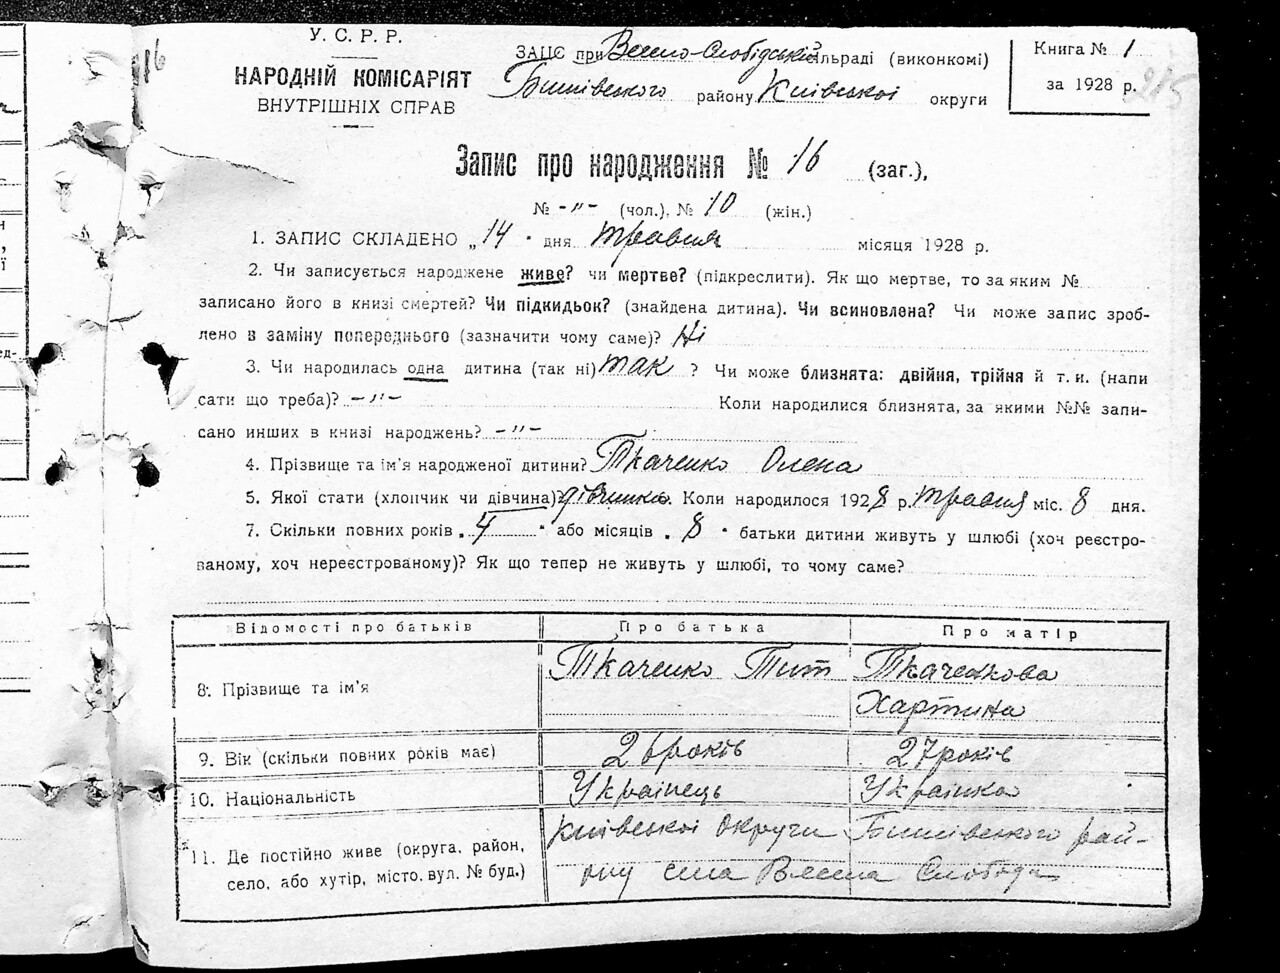 16
У. С. Р. Р.
НАРОДНІЙ КОМІСАРІЯТ
ВНУТРІШНІХ СПРАВ
ЗАЦС при Веселo-Слобідській сільраді (виконкомі)
Бишівського району Київської округи
Книга № 1
за 1928 р.
215
Запис про народження № 16 (заг.),
№ -"- (чол.), № 10 (жін.)
1. ЗАПИС СКЛАДЕНО „14" дня травня місяця 1928 р.
2. Чи записується народжене живе? чи мертве? (підкреслити). Як що мертве, то за яким №
записано його в книзі смертей? Чи підкидьок? (знайдена дитина). Чи всиновлена? Чи може запис зроб-
лено в заміну попереднього (зазначити чому саме)? Ні
3. Чи народилась одна дитина (так ні) так ? Чи може близнята: двійня, трійня й т. и. (напи
сати що треба)? -"- Коли народилися близнята, за якими №№ запи-
сано инших в книзі народжень? -"-
4. Прізвище та ім'я народженої дитини? Ткаченко Олена
5. Якої стати (хлопчик чи дівчина)? дівчинка. Коли народилося 1928 р. травня міс. 8 дня.
7. Скільки повних років „4" або місяців „8" батьки дитини живуть у шлюбі (хоч реєстро-
ваному, хоч нереєстрованому)? Як що тепер не живуть у шлюбі, то чому саме?
Відомості про батьків Про батька Про матір
8. Прізвище та ім'я Ткаченко Тит Ткаченкова
Хартина
9. Вік (скільки повних років має) 26 років 27 років
10. Національність Українець Українка
11. Де постійно живе (округа, район,
село, або хутір, місто, вул. № буд.)
Київської округи Бишівського рай-
ону села Весела Слобода